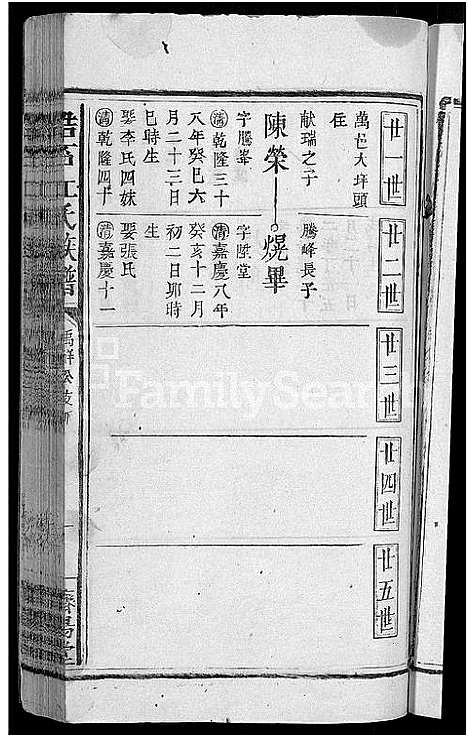 廿一世
萬邑大坪頭
住
献瑞之子
陳榮
字騰峯
清乾隆三十
八年癸巳六
月二十三日
巳時生
娶李氏四妹
清乾隆四十
廿二世
騰峰長子
焜畢
字陞堂
清嘉慶八年
癸亥十二月
初二日卯時
生
娶張氏
清嘉慶十一
廿三世
廿四世
廿五世
江氏族譜
一
濟陽堂
FamilySearch